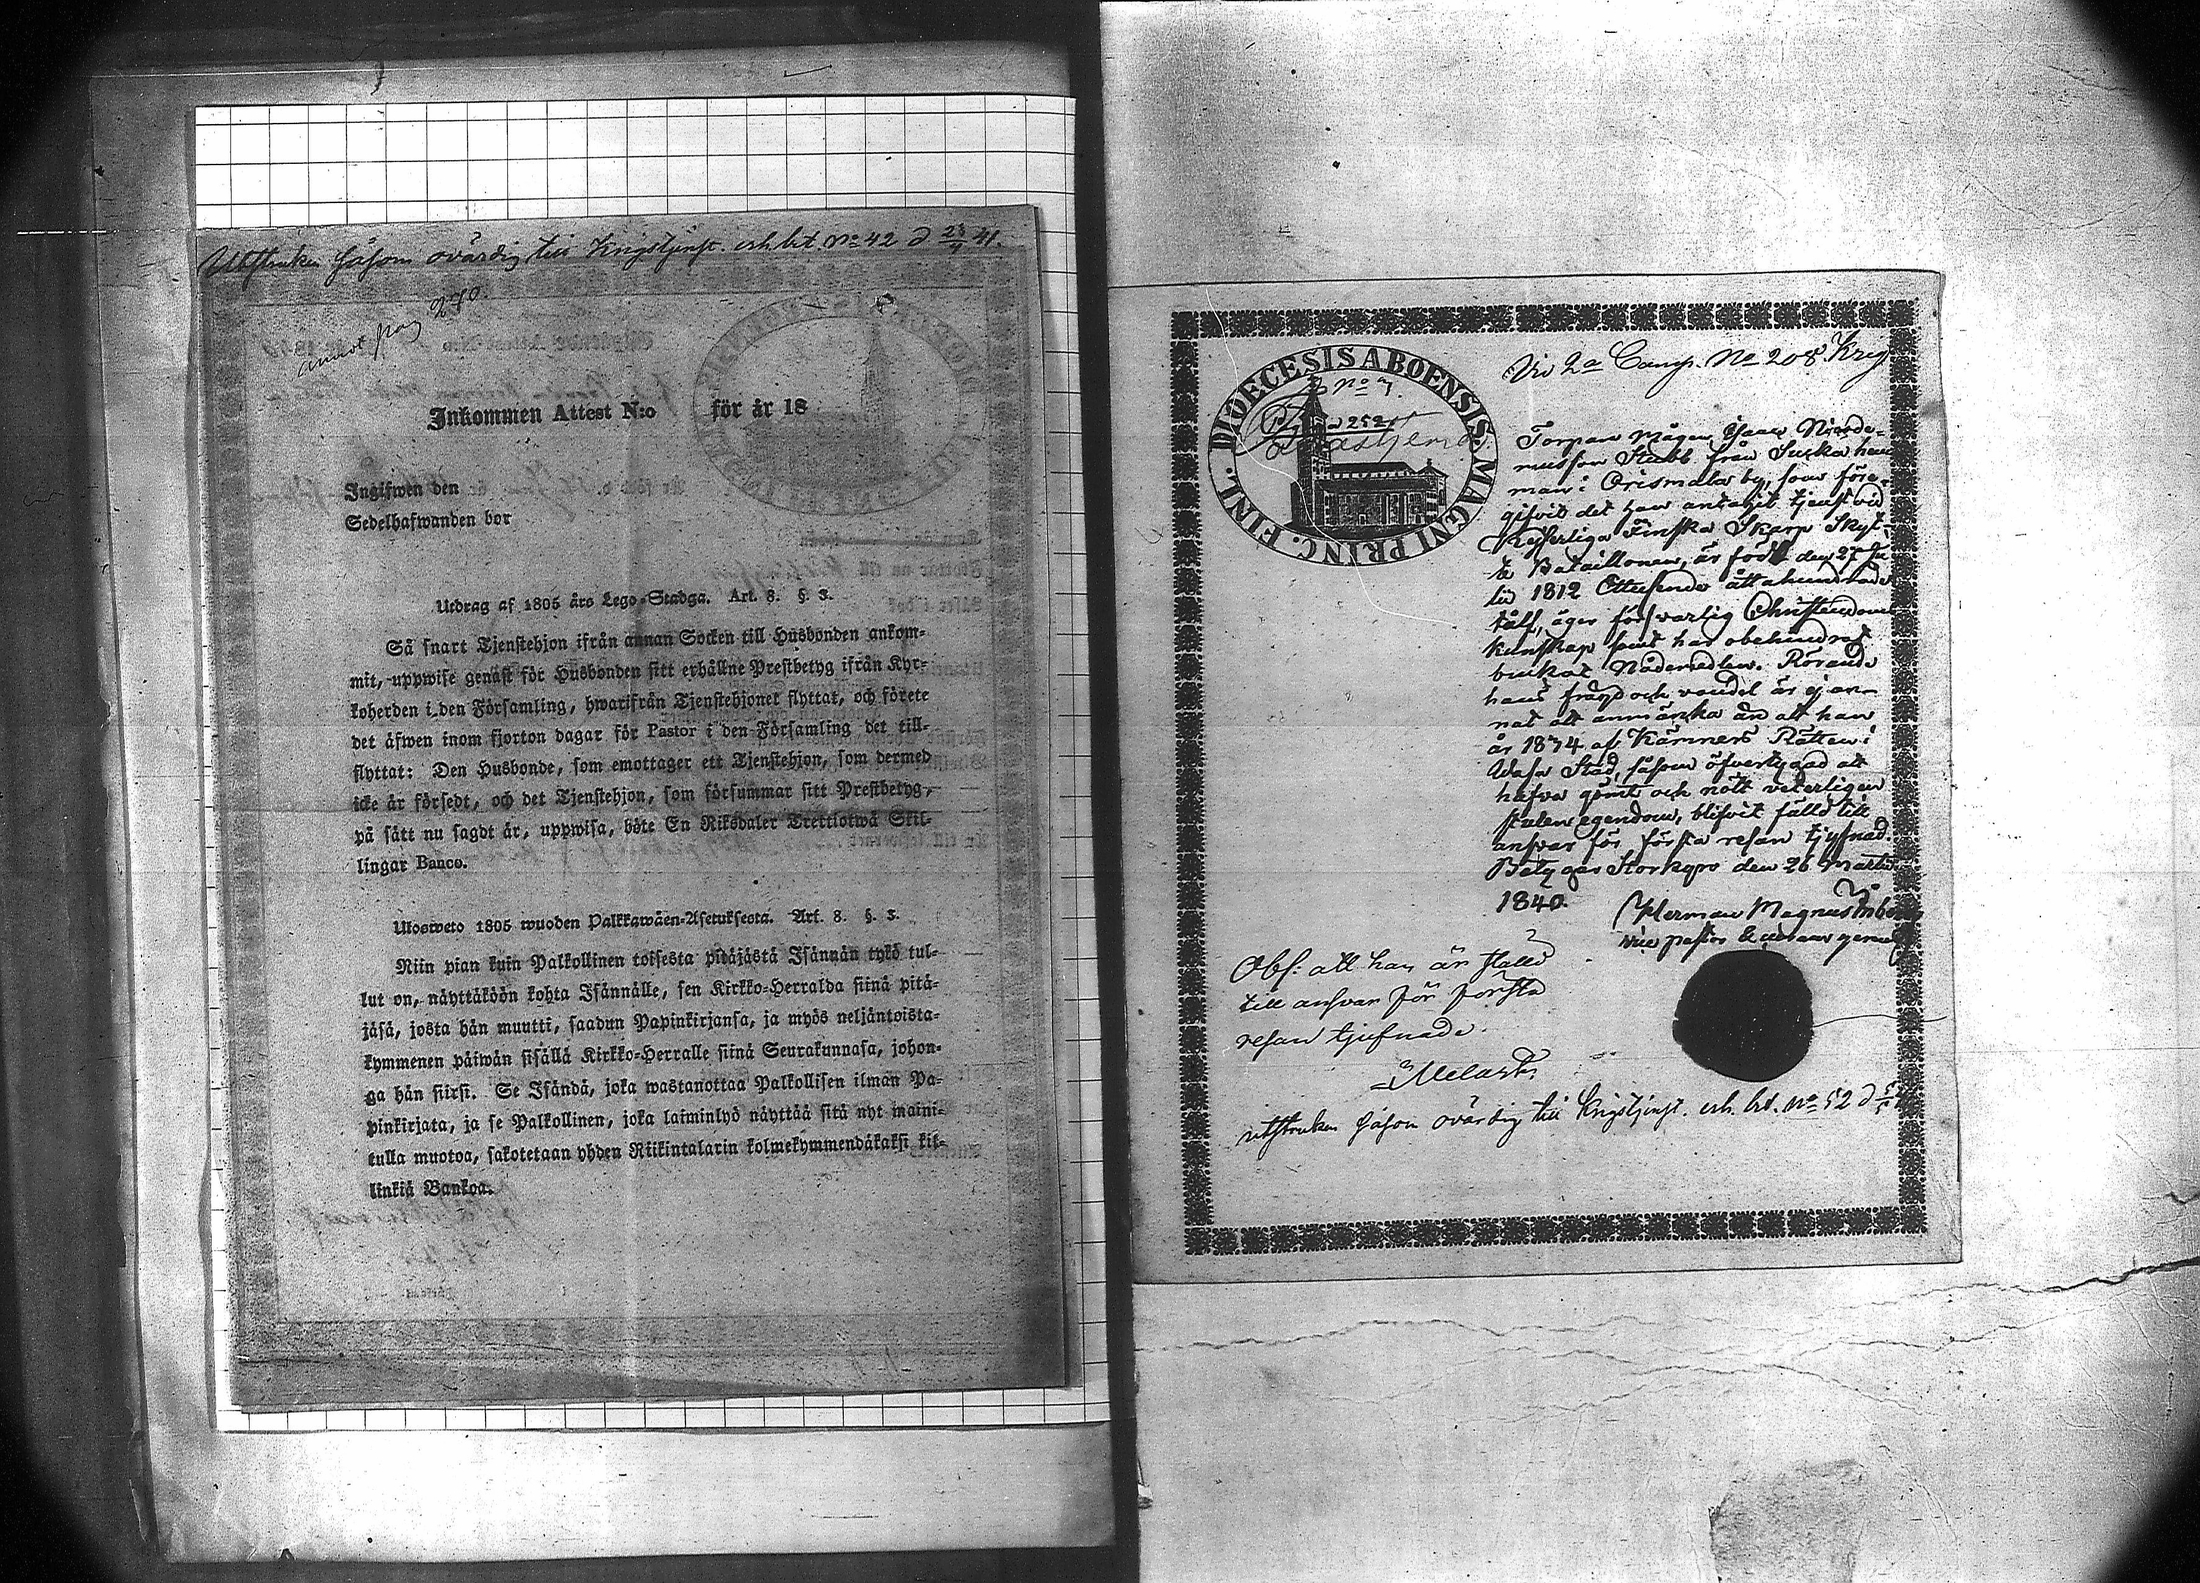 Utstruken såsom ovärdig till Krigstjenst. enh. brf. No 42 d 23/4 41.
annot pag 240.
Inkommen Attest N:o för år 18
Ingifwen den
Sedelhafwanden bor
Utdrag af 1805 års Lego-Stadga. Art. 8. §. 3.
Så snart Tjenstehjon ifrån annan Socken till Husbonden ankom-
mit, uppwise genast för Husbonden sitt erhållne Prestbetyg ifrån Kyr-
koherden i den Församling, hwarifrån Tjenstehjonet flyttat, och förete
det äfwen inom fjorton dagar för Pastor i den Församling det till-
flyttat: Den Husbonde, som emottager ett Tjenstehjon, som dermed
icke är försedt, och det Tjenstehjon, som försummar sitt Prestbetyg,
på sätt nu sagdt är, uppwisa, böte En Riksdaler Trettiotwå Skil-
lingar Banco.
Ulosweto 1805 wuoden Palkkawäen-Asetuksesta. Art. 8. §. 3.
Niin pian kuin Palkollinen toisesta pitäjästä Isännän tykö tul-
lut on, näyttäköön kohta Isännälle, sen Kirkko-Herralda siinä pitä-
jäsä, josta hän muutti, saadun Papinkirjansa, ja myös neljäntoista-
kymmenen päiwän sisällä Kirkko-Herralle siinä Seurakunnasa, johon-
ga hän siirsi. Se Isändä, joka wastanottaa Palkollisen ilman Pa-
pinkirjata, ja se Palkollinen, joka laiminlyö näyttää sitä nyt maini-
tulla muotoa, sakotetaan yhden Riikintalarin kolmekymmendäkaksi kil-
linkiä Bankoa.
DIOECESIS ABOENSIS MAGNI PRINC. FINL.
No 7.
252
Vid 2a Comp. No 208. Krig
Torpare mågen Isaac
Stubb från Sucka hem-
man i Orismala by, som före-
gifvit det han antagit tjenst vid
Kejserliga Finska Skarp Skyt-
te Bataillonen, är född den 27 Ju
lii 1812 Ettusende åttahundrade
tålf, äger försvarlig Christendoms
kunskap samt har obehindrat
brukat Nådemedlen. Rörande
hans frägd och vandel är ej an-
nat att anmärka än att han
år 1834 af Kämners Rätten i
Wasa Stad, såsom öfvertygad att
hafva gömt och nött veterligen
stulen egendom, blifvit fälld till
ansvar för första resan tjufnad.
Betygas Storkyro den 26 Martii
1840.
Herman Magnus
vice pastor
Obs: att han är fälld
till ansvar för första
resan tjufnad.
utstruken såsom ovärdig till Krigstjenst. enh. brf. No 52 d